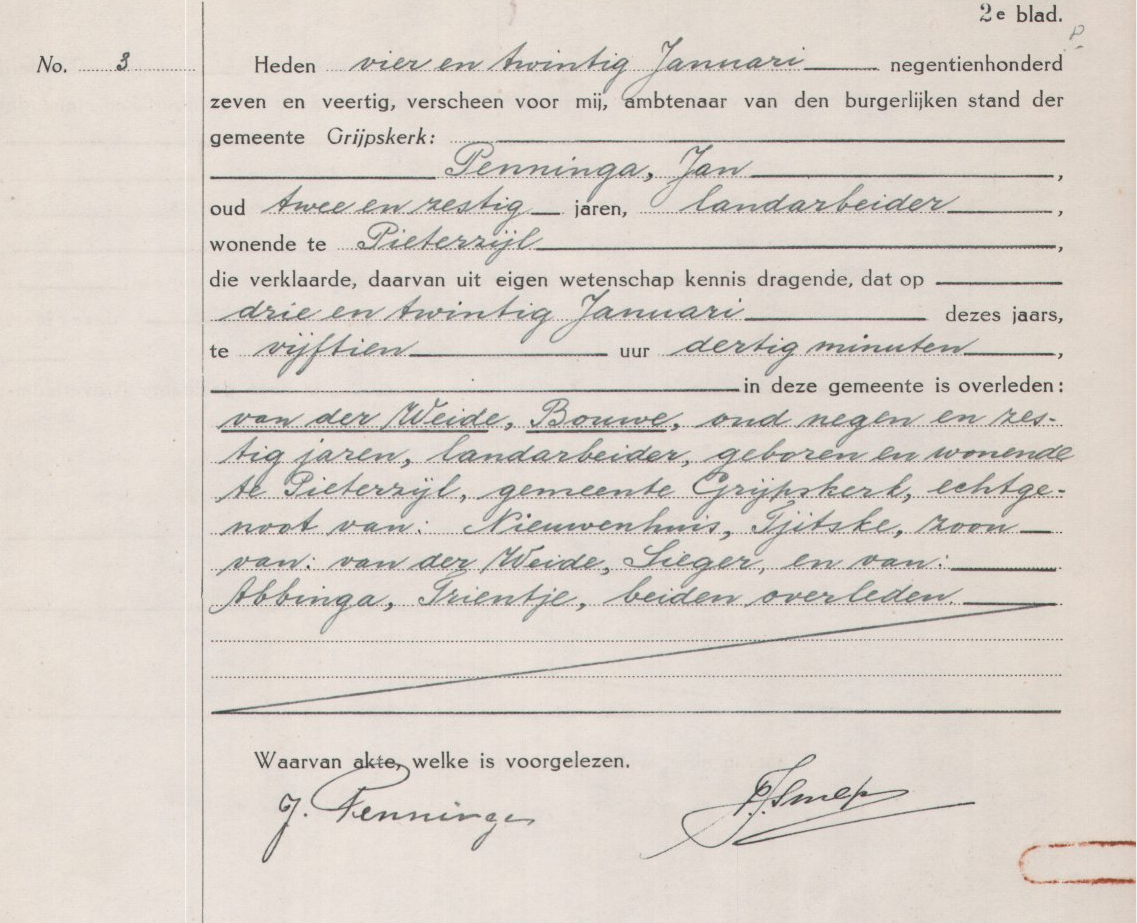 2e blad.
No. 3
Heden vier en twintig Januari negentienhonderd
zeven en veertig, verscheen voor mij, ambtenaar van den burgerlijken stand der
gemeente Grijpskerk:
Penninga, Jan,
oud twee en zestig jaren, landarbeider,
wonende te Pieterzijl,
die verklaarde, daarvan uit eigen wetenschap kennis dragende, dat op
drie en twintig Januari dezes jaars,
te vijftien uur dertig minuten,
in deze gemeente is overleden:
van der Weide, Bouwe, oud negen en zes-
tig jaren, landarbeider, geboren en wonende
te Pieterzijl, gemeente Grijpskerk, echtge-
noot van: Nieuwenhuis, Tjitske, zoon
van: van der Weide, Sieger, en van:
Abbinga, Trientje, beiden overleden.
Waarvan akte, welke is voorgelezen.
J. Penninga